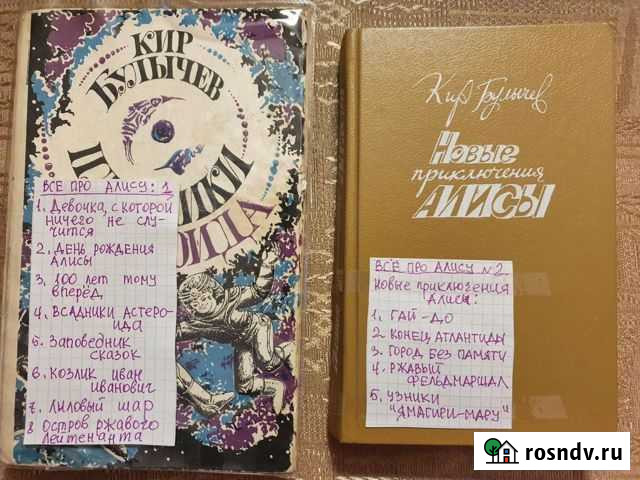 КИР
БУЛЫЧЕВ
ВСЁ ПРО АЛИСУ: 1
1. ДЕВОЧКА, С КОТОРОЙ
НИЧЕГО НЕ СЛУ-
ЧИТСЯ
2. ДЕНЬ РОЖДЕНИЯ
АЛИСЫ
3. 100 ЛЕТ ТОМУ
ВПЕРЁД
4. ВСАДНИКИ АСТЕРО-
ИДА
5. ЗАПОВЕДНИК
СКАЗОК
6. КОЗЛИК ИВАН
ИВАНОВИЧ
7. ЛИЛОВЫЙ ШАР
8 ОСТРОВ РЖАВОГО
ЛЕЙТЕНАНТА
Кир Булычев
Новые
приключения
АЛИСЫ
ВСЁ ПРО АЛИСУ №2
НОВЫЕ ПРИКЛЮЧЕНИЯ
АЛИСЫ:
1. ГАЙ-ДО
2 КОНЕЦ АТЛАНТИДЫ
3. ГОРОД БЕЗ ПАМЯТИ
4. РЖАВЫЙ
ФЕЛЬДМАРШАЛ
5. УЗНИКИ
"ЯМАГИРИ-МАРУ"
rosndv.ru